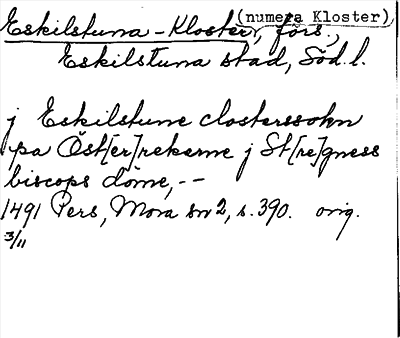 (numera Kloster)
Eskilstuna-Kloster, förs.,
Eskilstuna stad, Söd. l.
j Eskilstune closterssokn
pa Öst[er]rekarne j St[re]gness
biscops döme, --
1491 Pers, Mora sn 2, s. 390. orig.
3/11